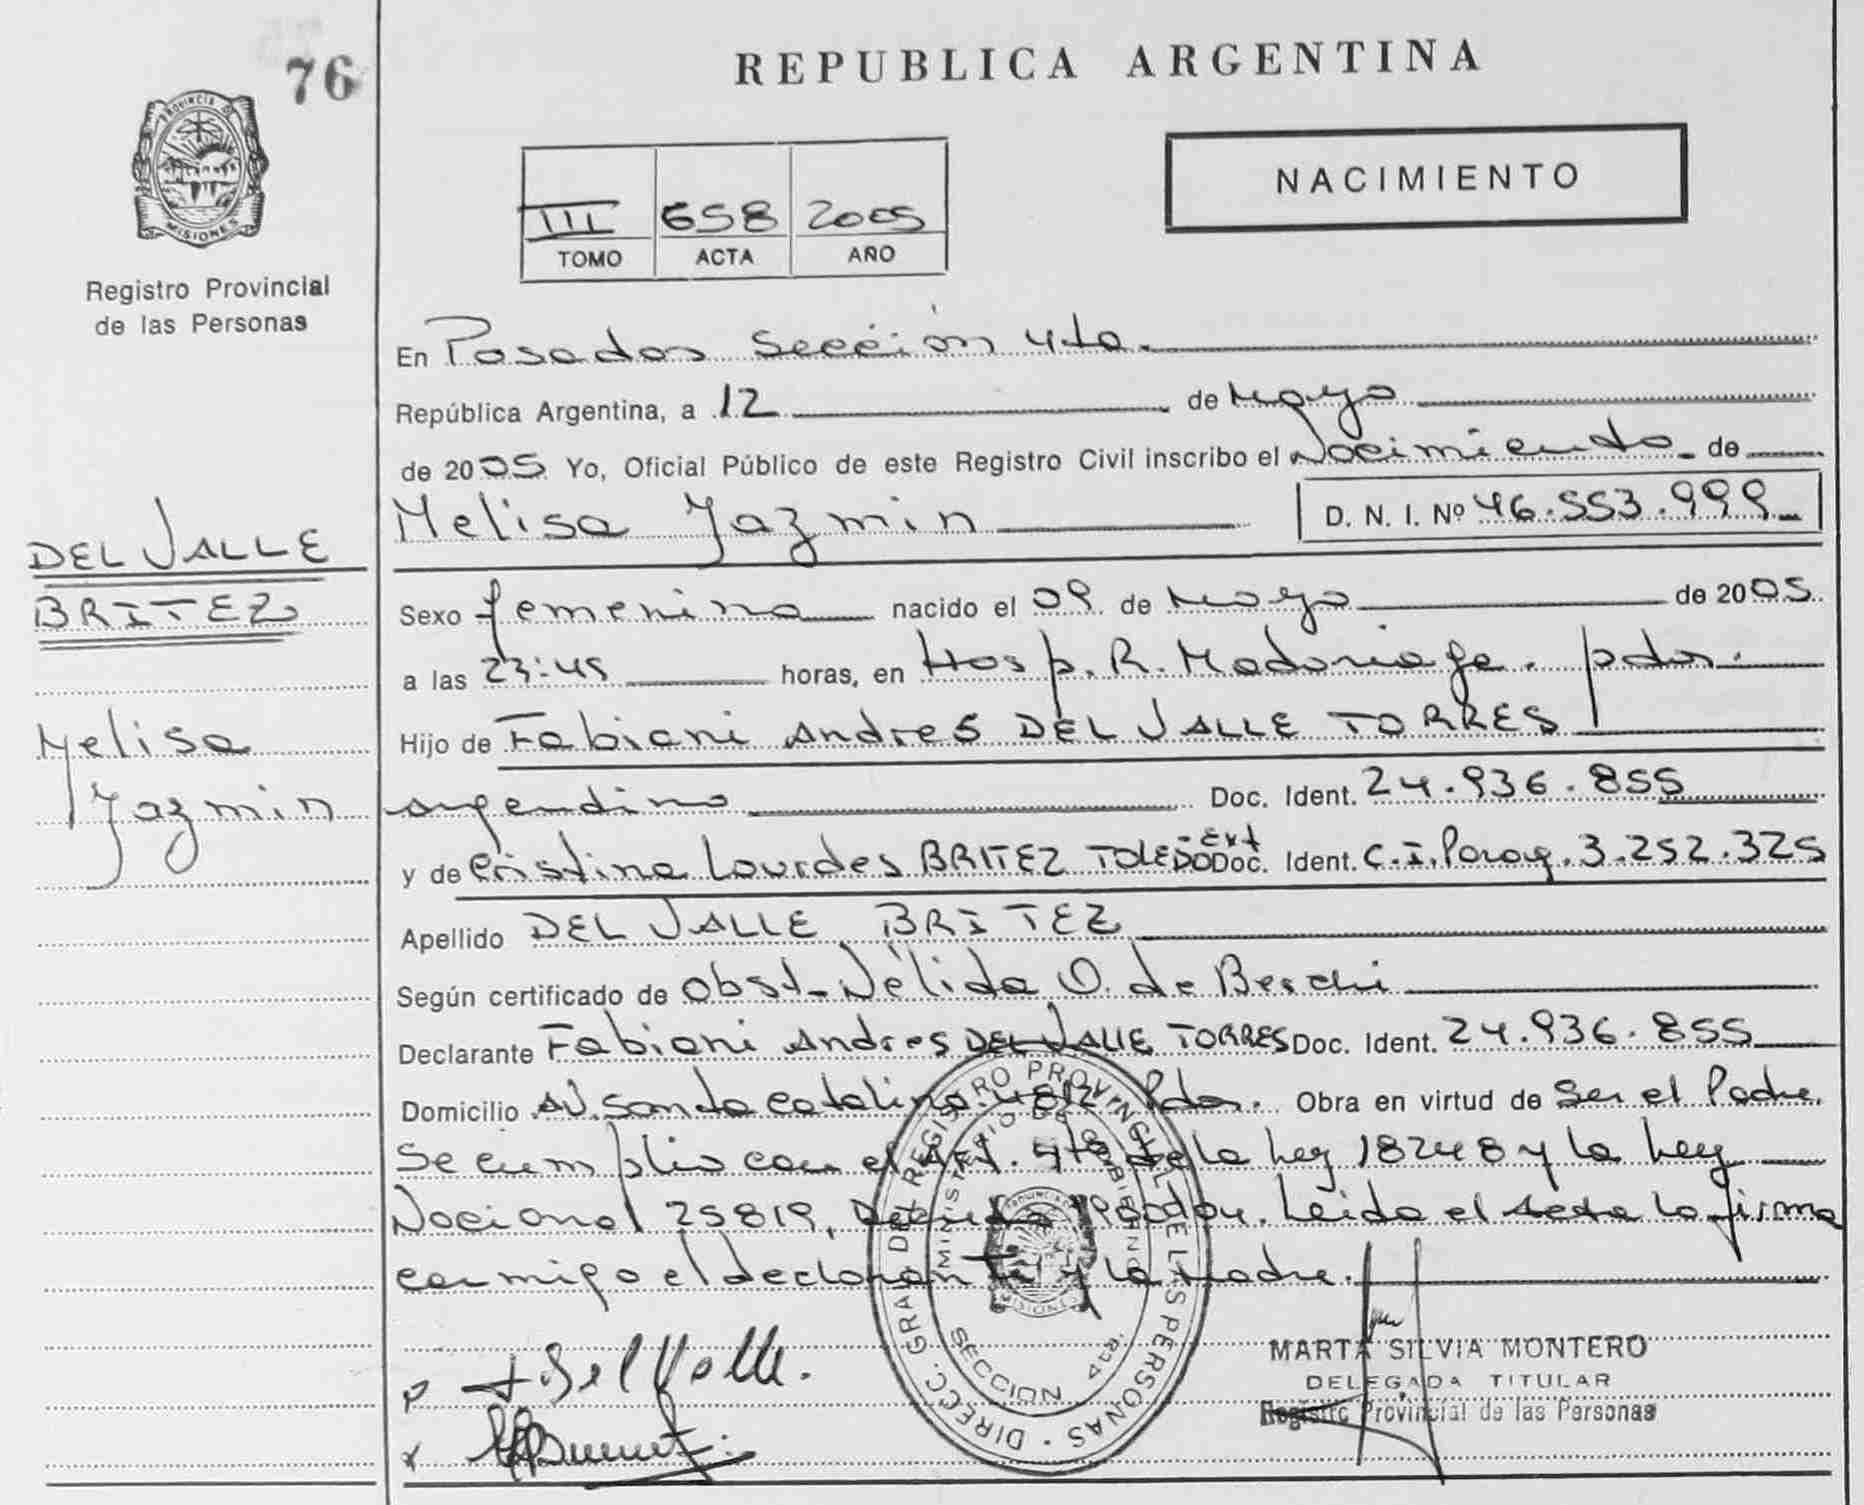 76
PROVINCIA DE
MISIONES
Registro Provincial
de las Personas
DEL VALLE
BRITEZ
Melisa
Yazmin
REPUBLICA ARGENTINA
NACIMIENTO
III 658 2005
TOMO ACTA AÑO
En Posadas Sección 4ta.
República Argentina, a 12 de Mayo
de 2005 Yo, Oficial Público de este Registro Civil inscribo el Nacimiento de
Melisa Yazmin D. N. I. Nº 46.553.999
Sexo femenino nacido el 09 de Mayo de 2005
a las 23:45 horas, en Hosp. R. Madariaga. pdas.
Hijo de Fabiani Andres DEL VALLE TORRES
argentino Doc. Ident. 24.936.855
y de Cristina Lourdes BRITEZ TOLEDO -Ext Doc. Ident. C.I. Parag. 3.252.325
Apellido DEL VALLE BRITEZ
Según certificado de Obst. Nélida O. de Berchi
Declarante Fabiani Andres DEL VALLE TORRES Doc. Ident. 24.936.855
Domicilio Av. Santa Catalina 4812 Pdas. Obra en virtud de Ser el Padre.
Se cumplio con el Art. 4to de la Ley 18248 y la Ley
Nacional 25819, Leida el acta la firma
conmigo el declarante y la Madre.
Del Valle.
DIRECC. GRAL. DEL REGISTRO PROVINCIAL DE LAS PERSONAS
MINISTERIO DE GOBIERNO
PROVINCIA DE
MISIONES
SECCION 4ta.
MARTA SILVIA MONTERO
DELEGADA TITULAR
Registro Provincial de las Personas